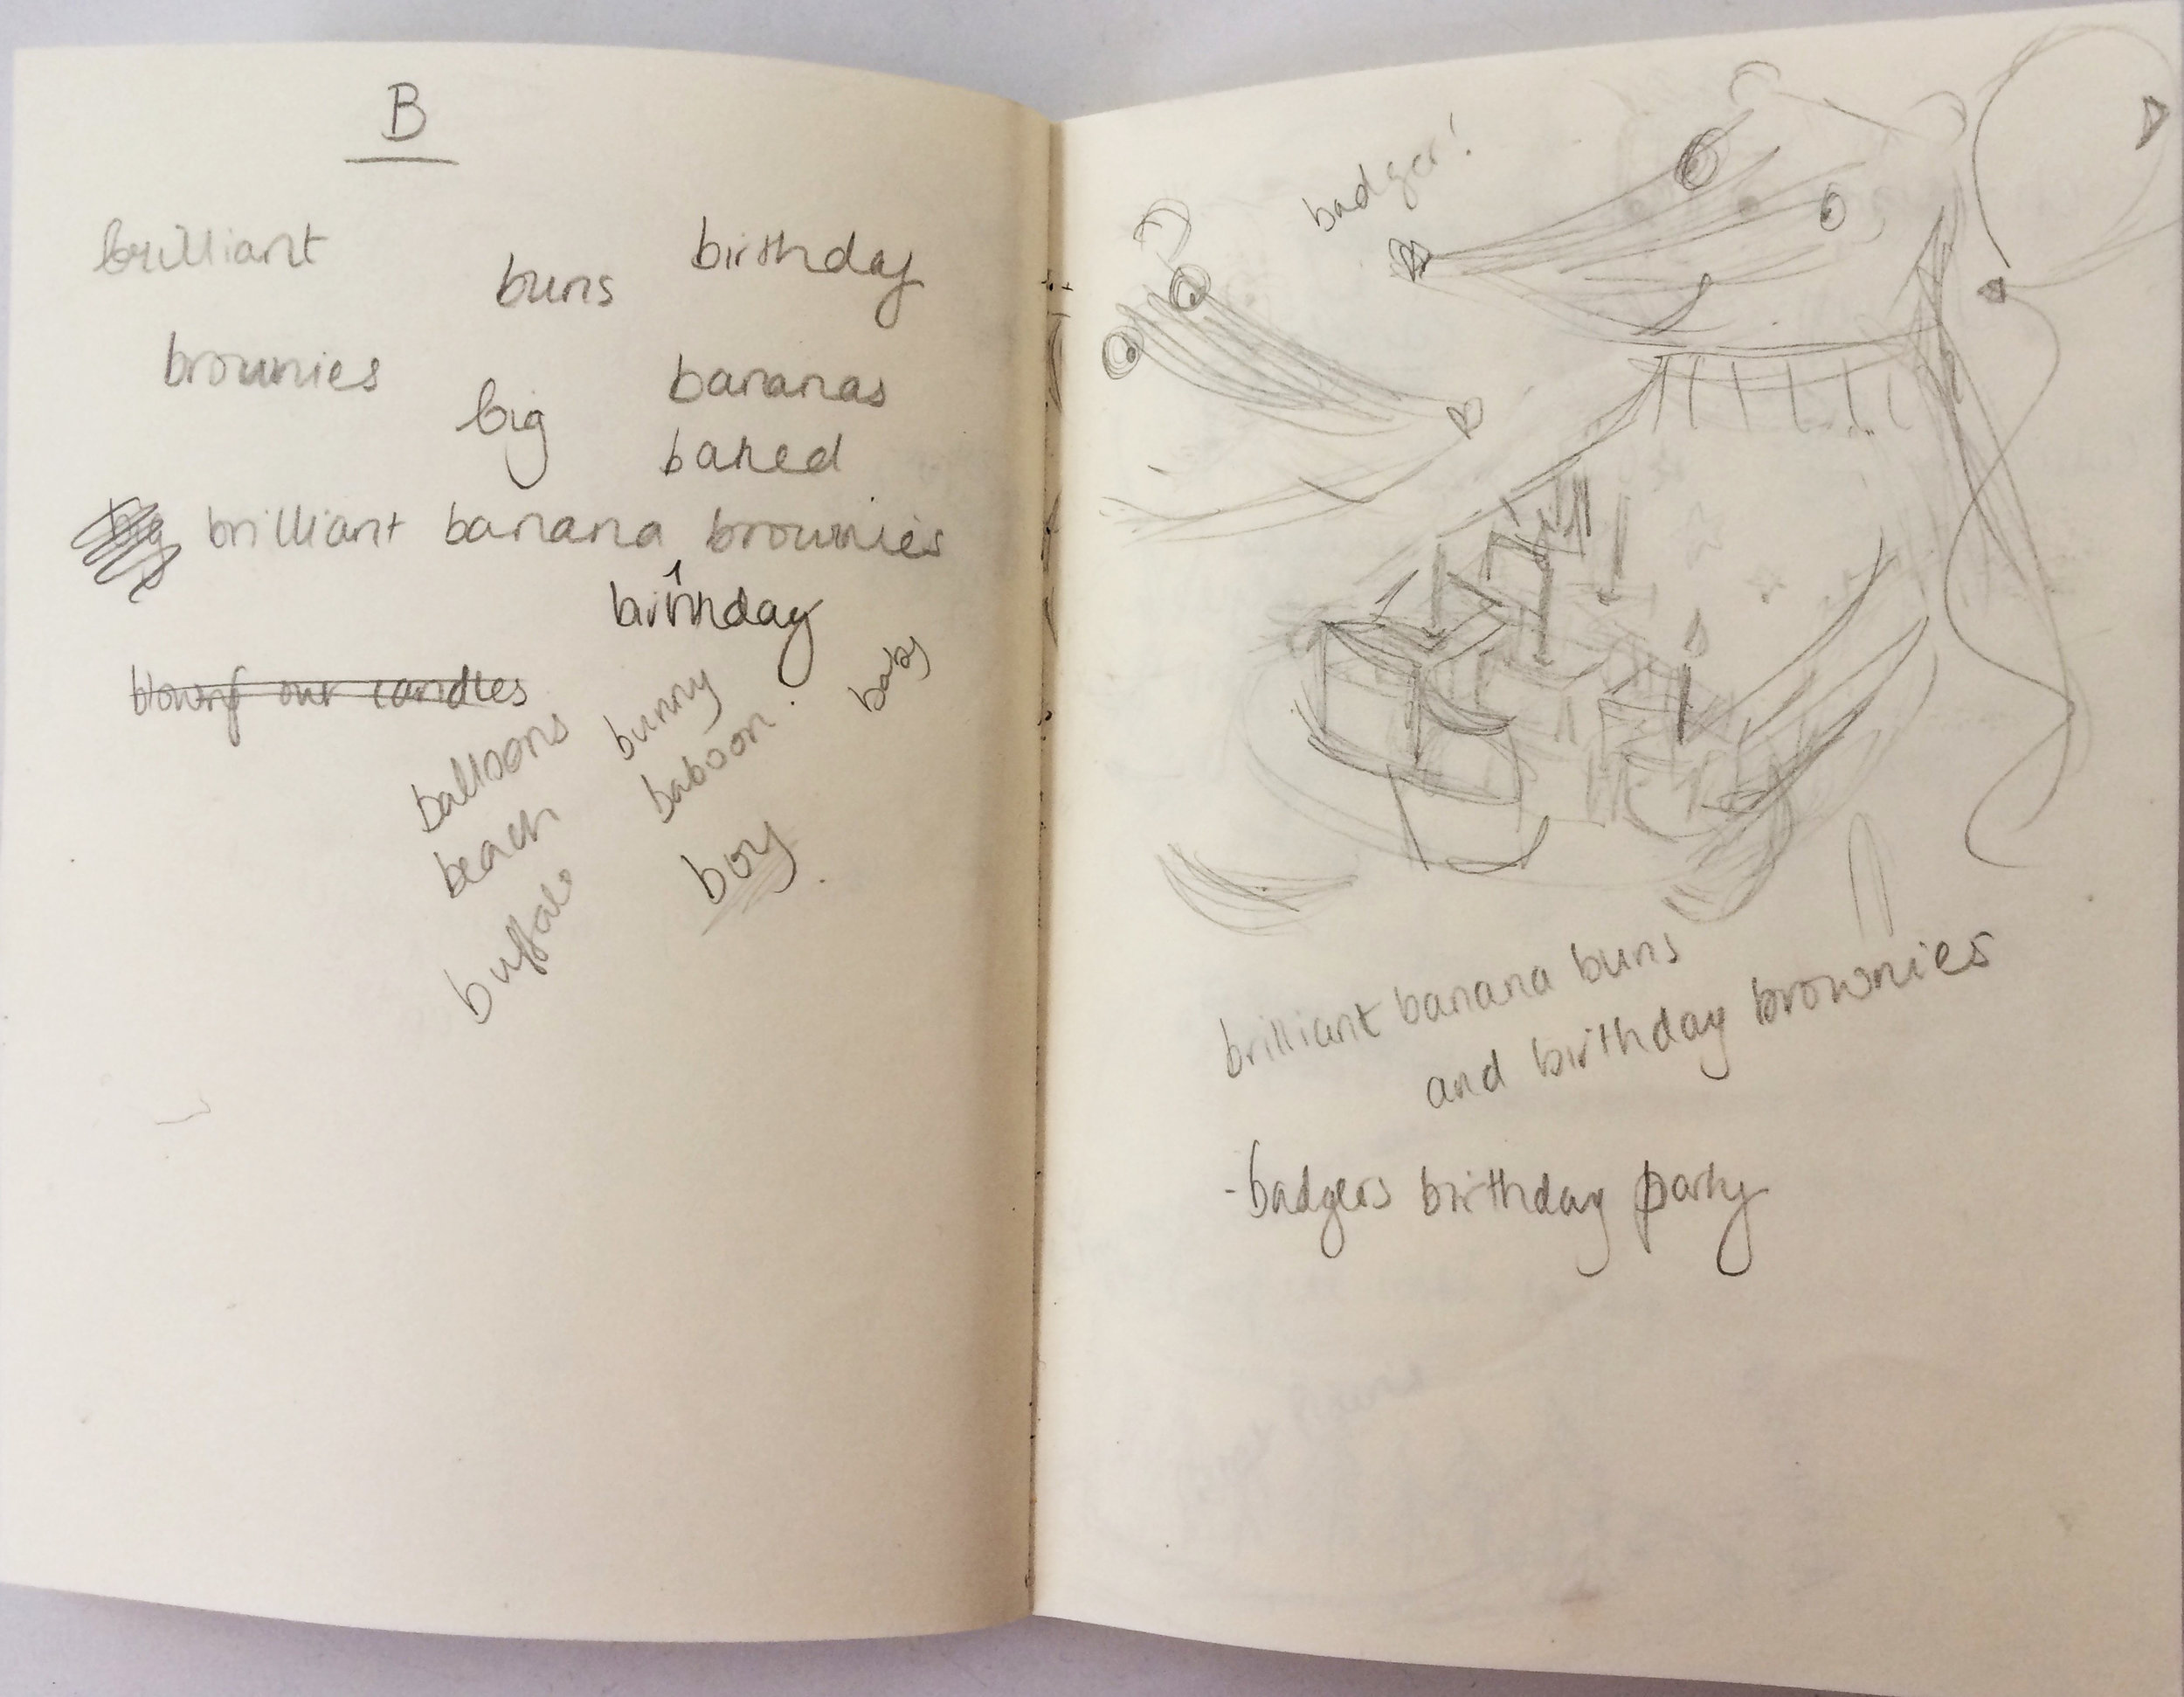 B
brilliant
buns
birthday
brownies
big
bananas
baked
brilliant banana brownies
birthday
blowing out candles
balloons
beach
buffalo
bunny
baboon
boy
baby
badger!
brilliant banana buns
and birthday brownies
-badgers birthday party